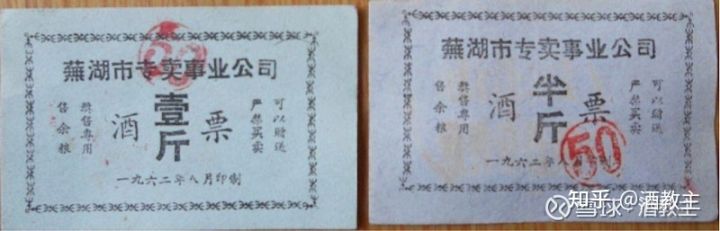 50
芜湖市专卖事业公司
售余粮
奖售专用
酒
壹斤
票
严禁买卖
可以赠送
一九六二年八月印制
芜湖市专卖事业公司
售余粮
奖售专用
酒
半斤
票
严禁买卖
可以赠送
一九六二年八月印制
50
知乎 @酒教主
雪球·酒教主